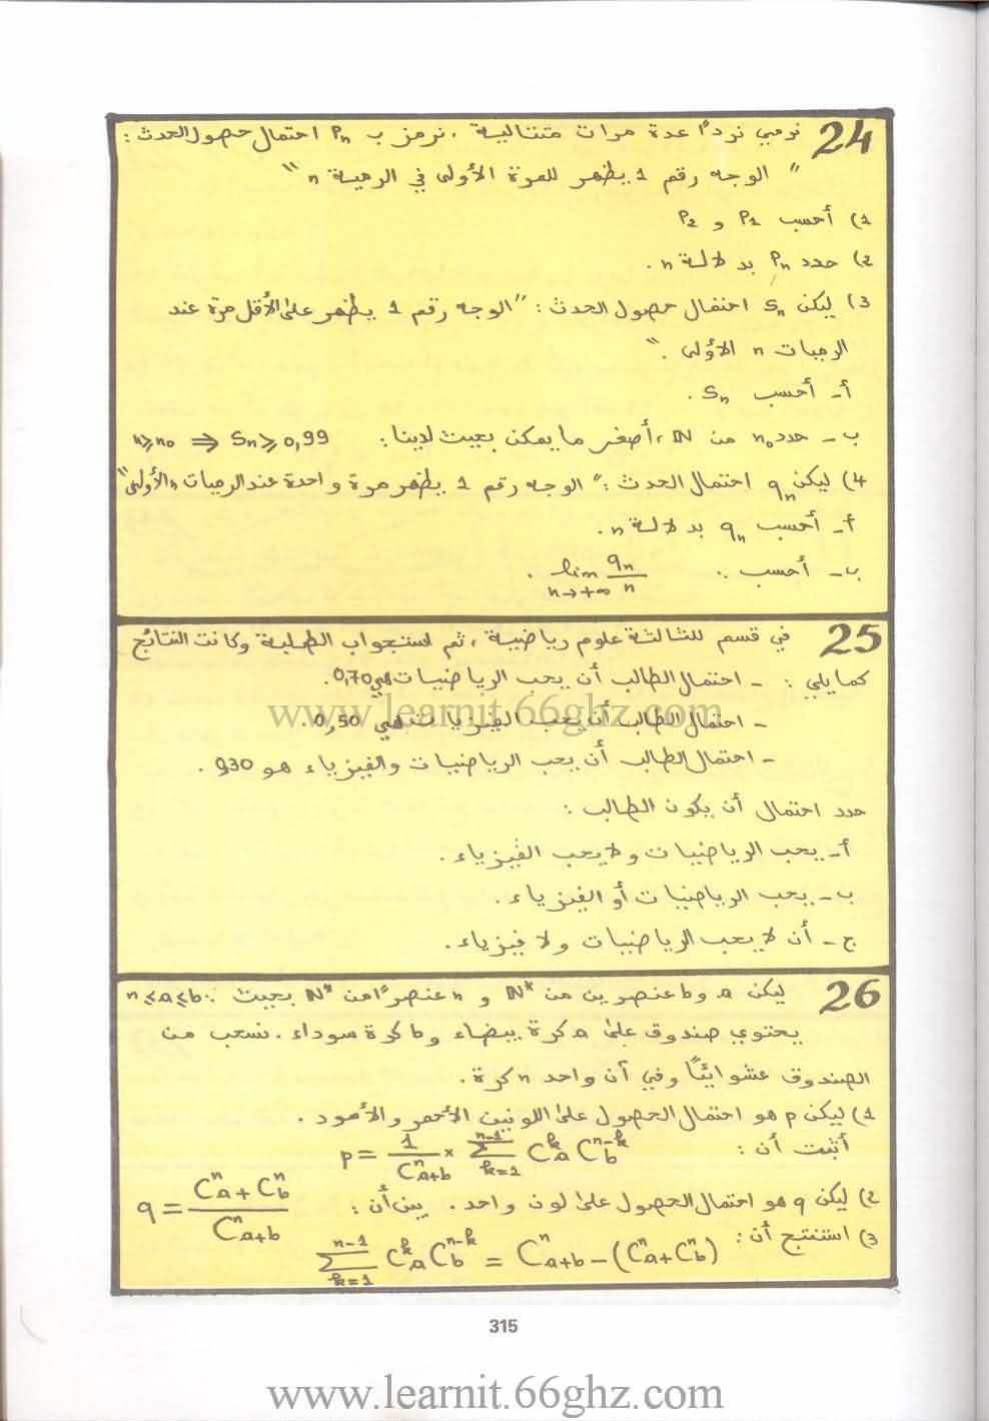 24 نرمي نردًا عدة مرات متتالية . نرمز ب Pₙ احتمال حصول الحدث :
" الوجه رقم 1 يظهر للمرة الأولى في الرمية n "
1) أحسب P₁ و P₂
2) حدد Pₙ بدلالة n .
3) ليكن Sₙ احتمال حصول الحدث : "الوجه رقم 1 يظهر على الأقل مرة عند
الرميات n الأولى . "
أ- أحسب Sₙ .
ب - حدد n₀ من ℕ ، أصغر ما يمكن بحيث لدينا : n ⩾ n₀ ⇒ Sₙ ⩾ 0,99
4) ليكن qₙ احتمال الحدث : " الوجه رقم 1 يظهر مرة واحدة عند الرميات n الأولى "
أ- أحسب qₙ بدلالة n .
ب- أحسب : lim_{n→+∞} qₙ/n .
25 في قسم للثالثة علوم رياضية ، تم استجواب الطلبة وكانت النتائج
كمايلي : - احتمال الطالب أن يحب الرياضيات هي 0,70 .
- احتمال الطالب أن يحب الفيزياء هي 0,50 .
- احتمال الطالب أن يحب الرياضيات والفيزياء هو 0,30 .
حدد احتمال أن يكون الطالب :
أ- يحب الرياضيات ولا يحب الفيزياء .
ب - يحب الرياضيات أو الفيزياء .
ج - أن لا يحب الرياضيات ولا فيزياء .
26 ليكن a و b عنصرين من ℕ* و n عنصرًا من ℕ* بحيث : n ⩽ a ⩽ b
يحتوي صندوق على a كرة بيضاء و b كرة سوداء . نسحب من
الصندوق عشوائيًا وفي آن واحد n كرة .
1) ليكن p هو احتمال الحصول على اللونين الأحمر والأسود .
أثبت أن : p = 1/C_{a+b}^{n} × Σ_{k=1}^{n-1} C_a^k C_b^{n-k}
2) ليكن q هو احتمال الحصول على لون واحد . بين أن : q = (C_a^n + C_b^n)/C_{a+b}^{n}
3) استنتج أن : Σ_{k=1}^{n-1} C_a^k C_b^{n-k} = C_{a+b}^{n} - (C_a^n + C_b^n)
315
www.learnit.66ghz.com
www.learnit.66ghz.com